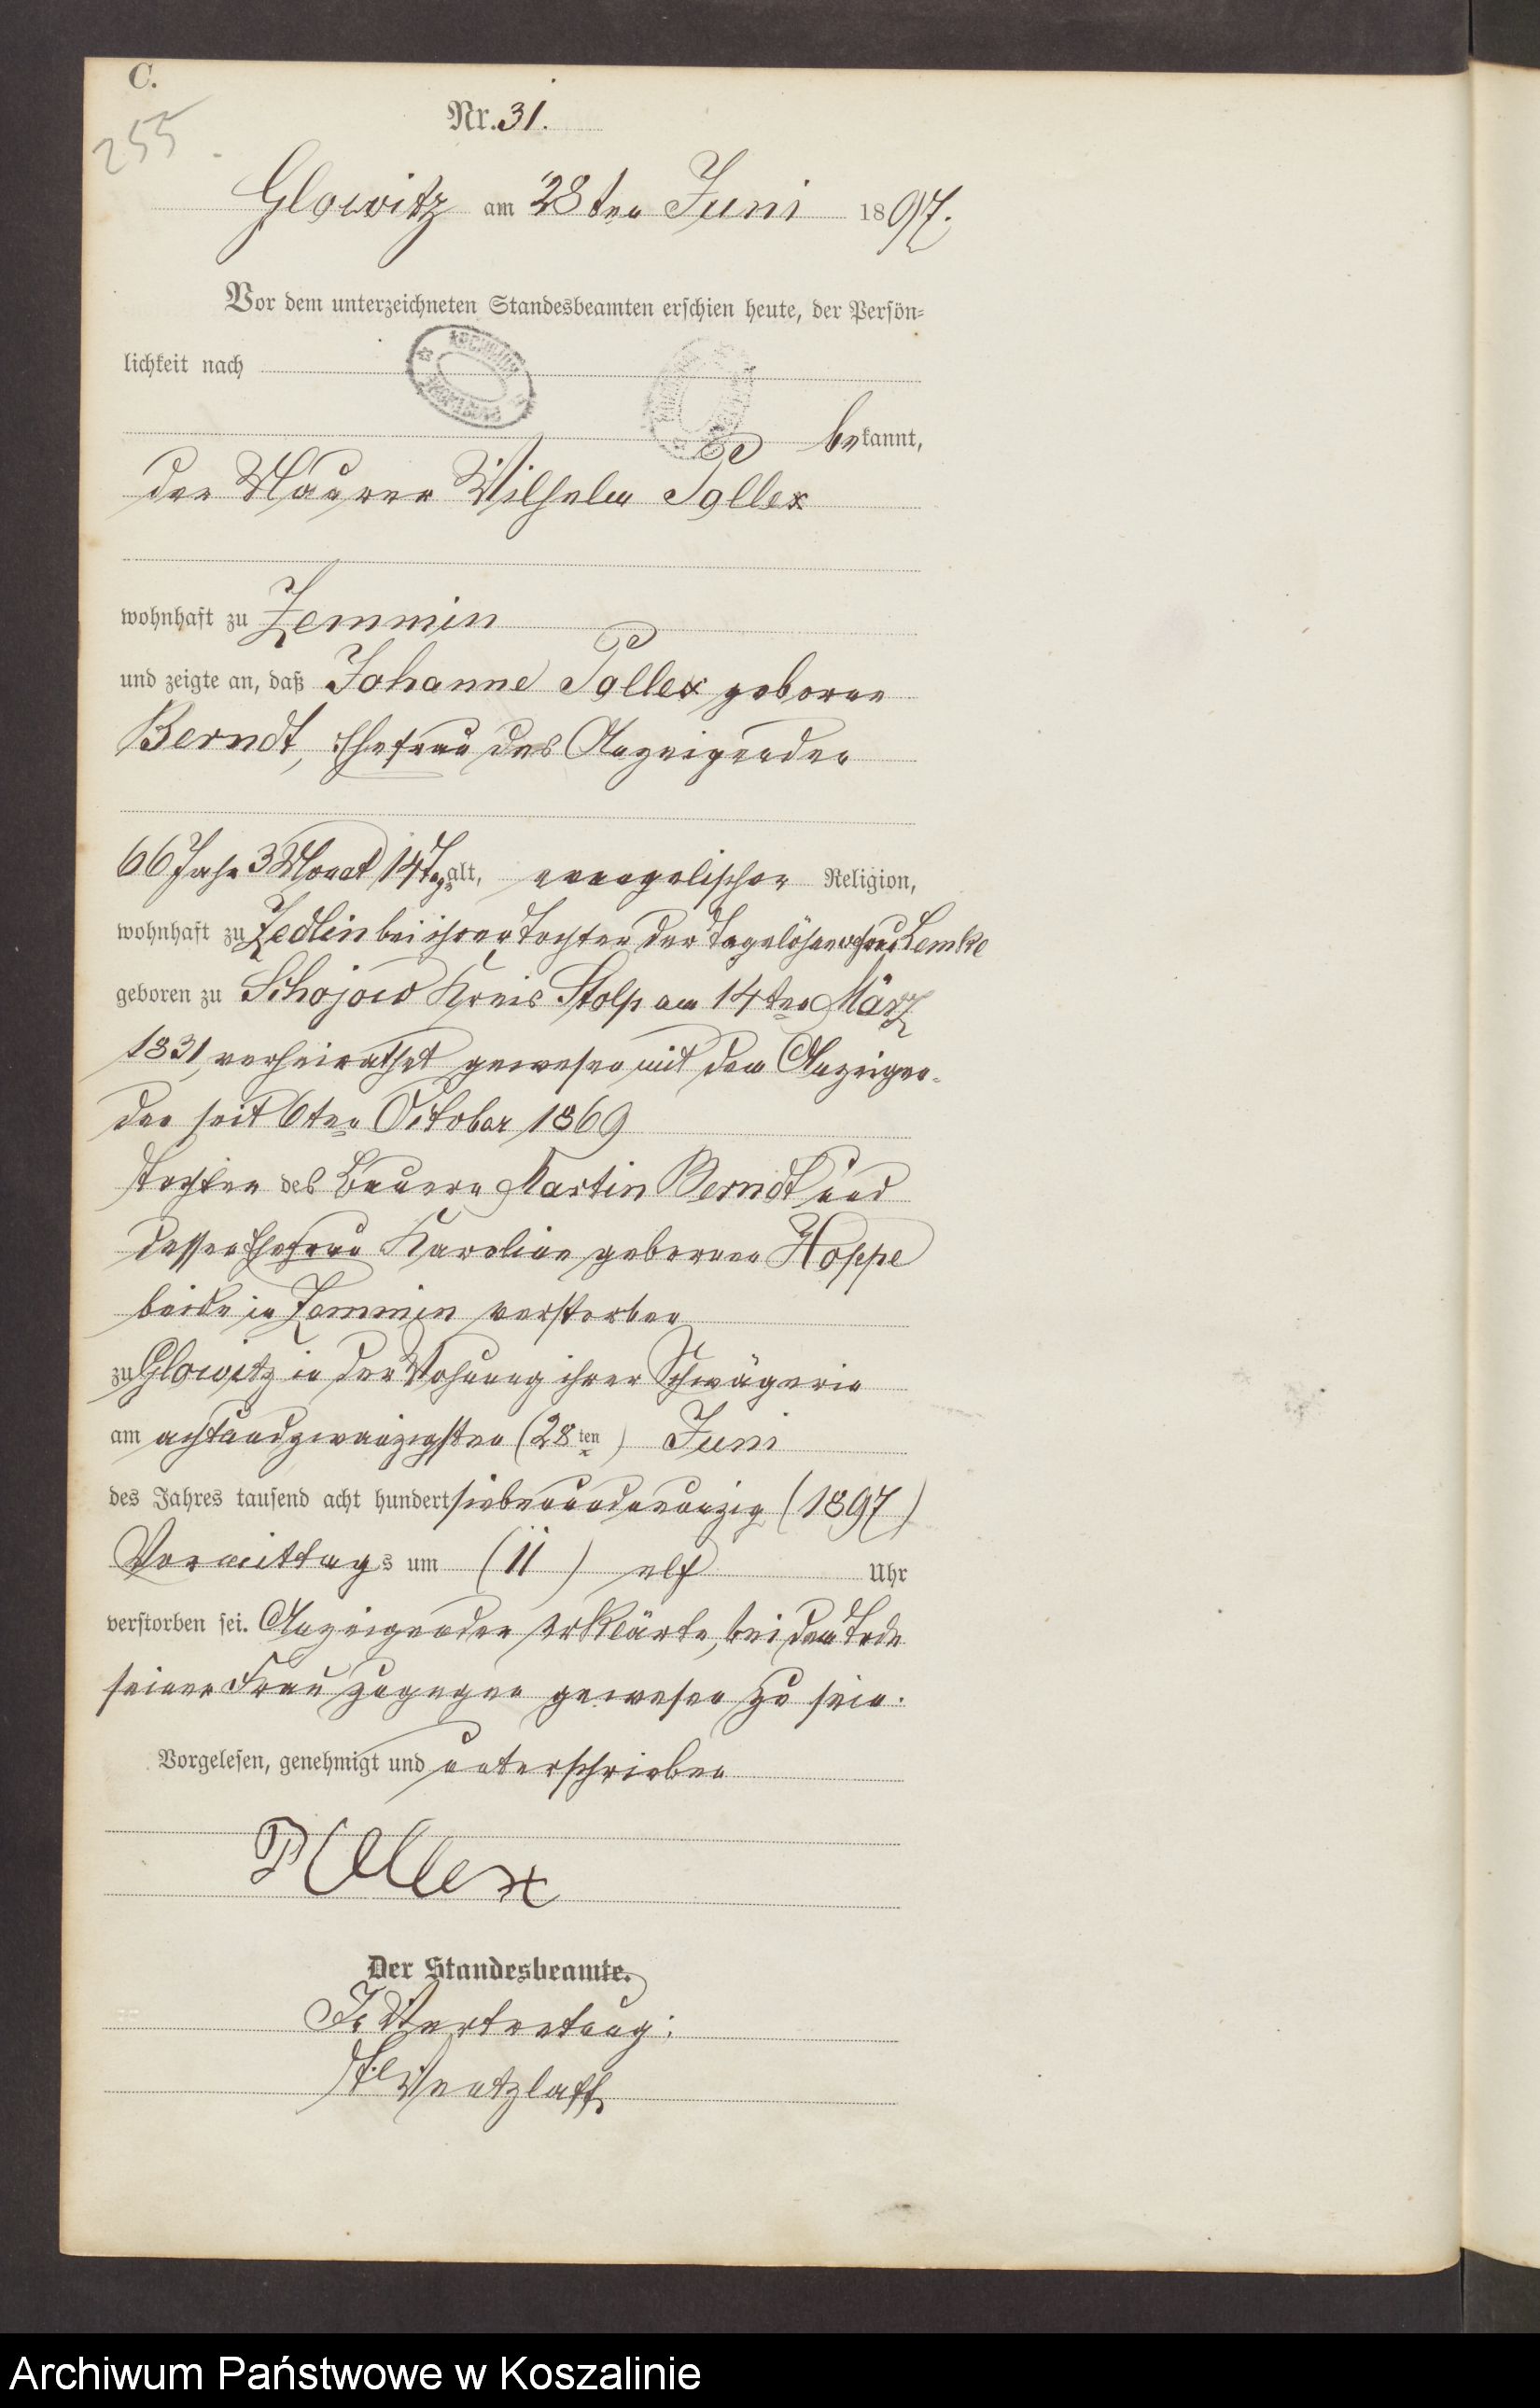 C.
255
Nr. 31.
Glowitz am 28ten Juni 1897.
Vor dem unterzeichneten Standesbeamten erschien heute, der Persön-
lichkeit nach
bekannt,
der Maurer Wilhelm Pollex
wohnhaft zu Zemmin
und zeigte an, daß Johanne Pollex geborene
Berndt, Ehefrau des Anzeigenden
66 Jahr 3 Monat 14 Tage alt, evangelischer Religion,
wohnhaft zu Zedlin bei ihrer Tochter der Tagelöhnerfrau Lemke
geboren zu Schojow Kreis Stolp am 14ten März
1831, verheirathet gewesen mit dem Anzeigen-
den seit 6ten October 1869
Tochter des Bauern Martin Berndt und
dessen Ehefrau Karoline geborene Hoppe
beide in Zemmin verstorben
zu Glowitz in der Wohnung ihrer Schwägerin
am achtundzwanzigsten (28ten) Juni
des Jahres tausend acht hundert siebenundneunzig (1897)
Vormittags um (11) elf Uhr
verstorben sei. Anzeigender erklärte, bei dem Tode
seiner Frau zugegen gewesen zu sein.
Vorgelesen, genehmigt und unterschrieben
Pollex
Der Standesbeamte.
In Vertretung:
Wentzlaff
Archiwum Państwowe w Koszalinie